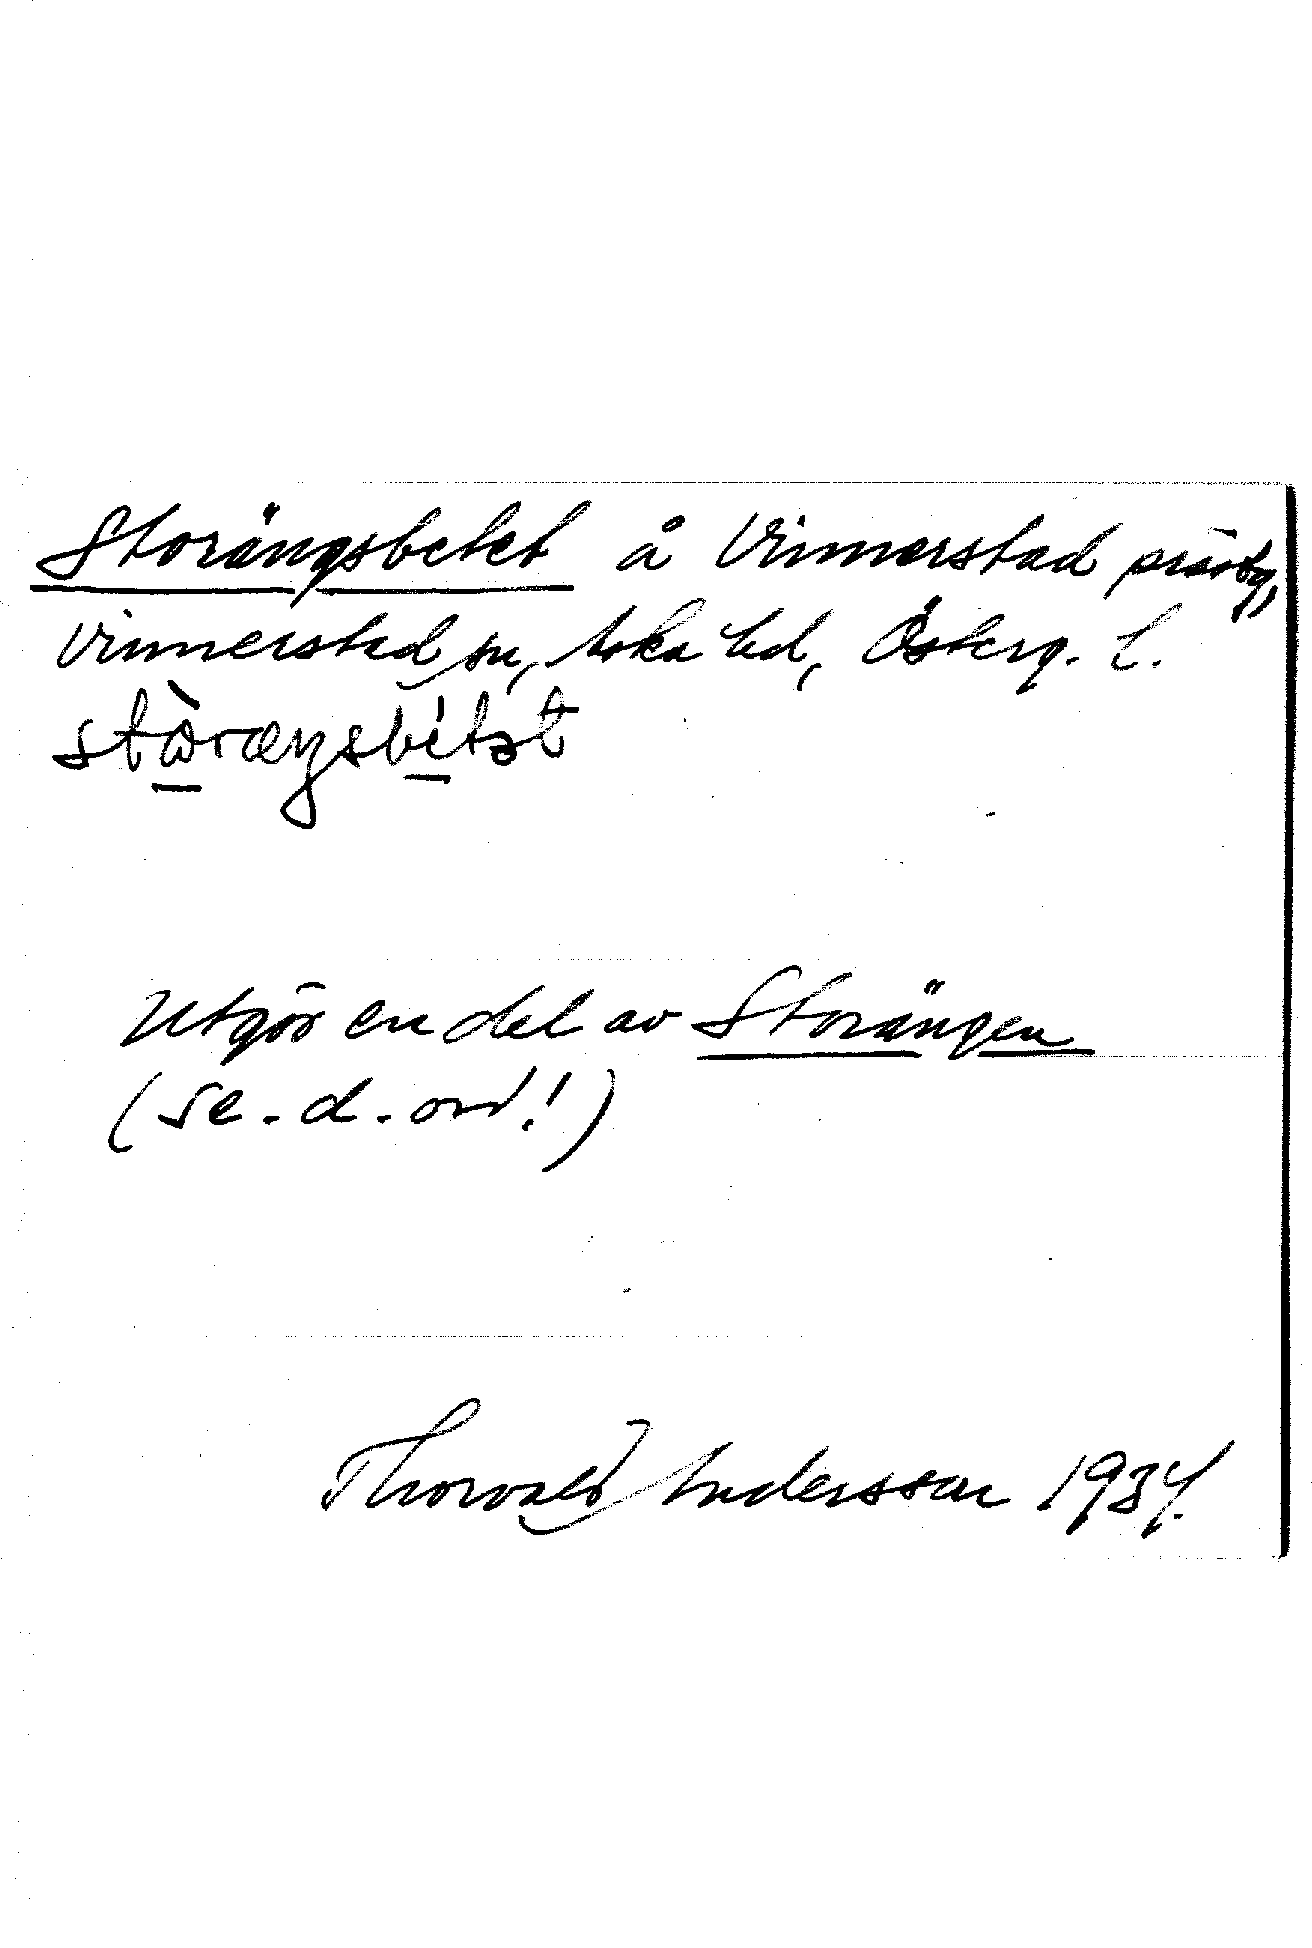 Storängsbetet å Vinnerstad prästg,
Vinnerstad sn, Aska hd, Österg. L.
stωræŋsbetət
Utgör en del av Storängen
(se. d. ord!)
Thorvald Andersson 1934.